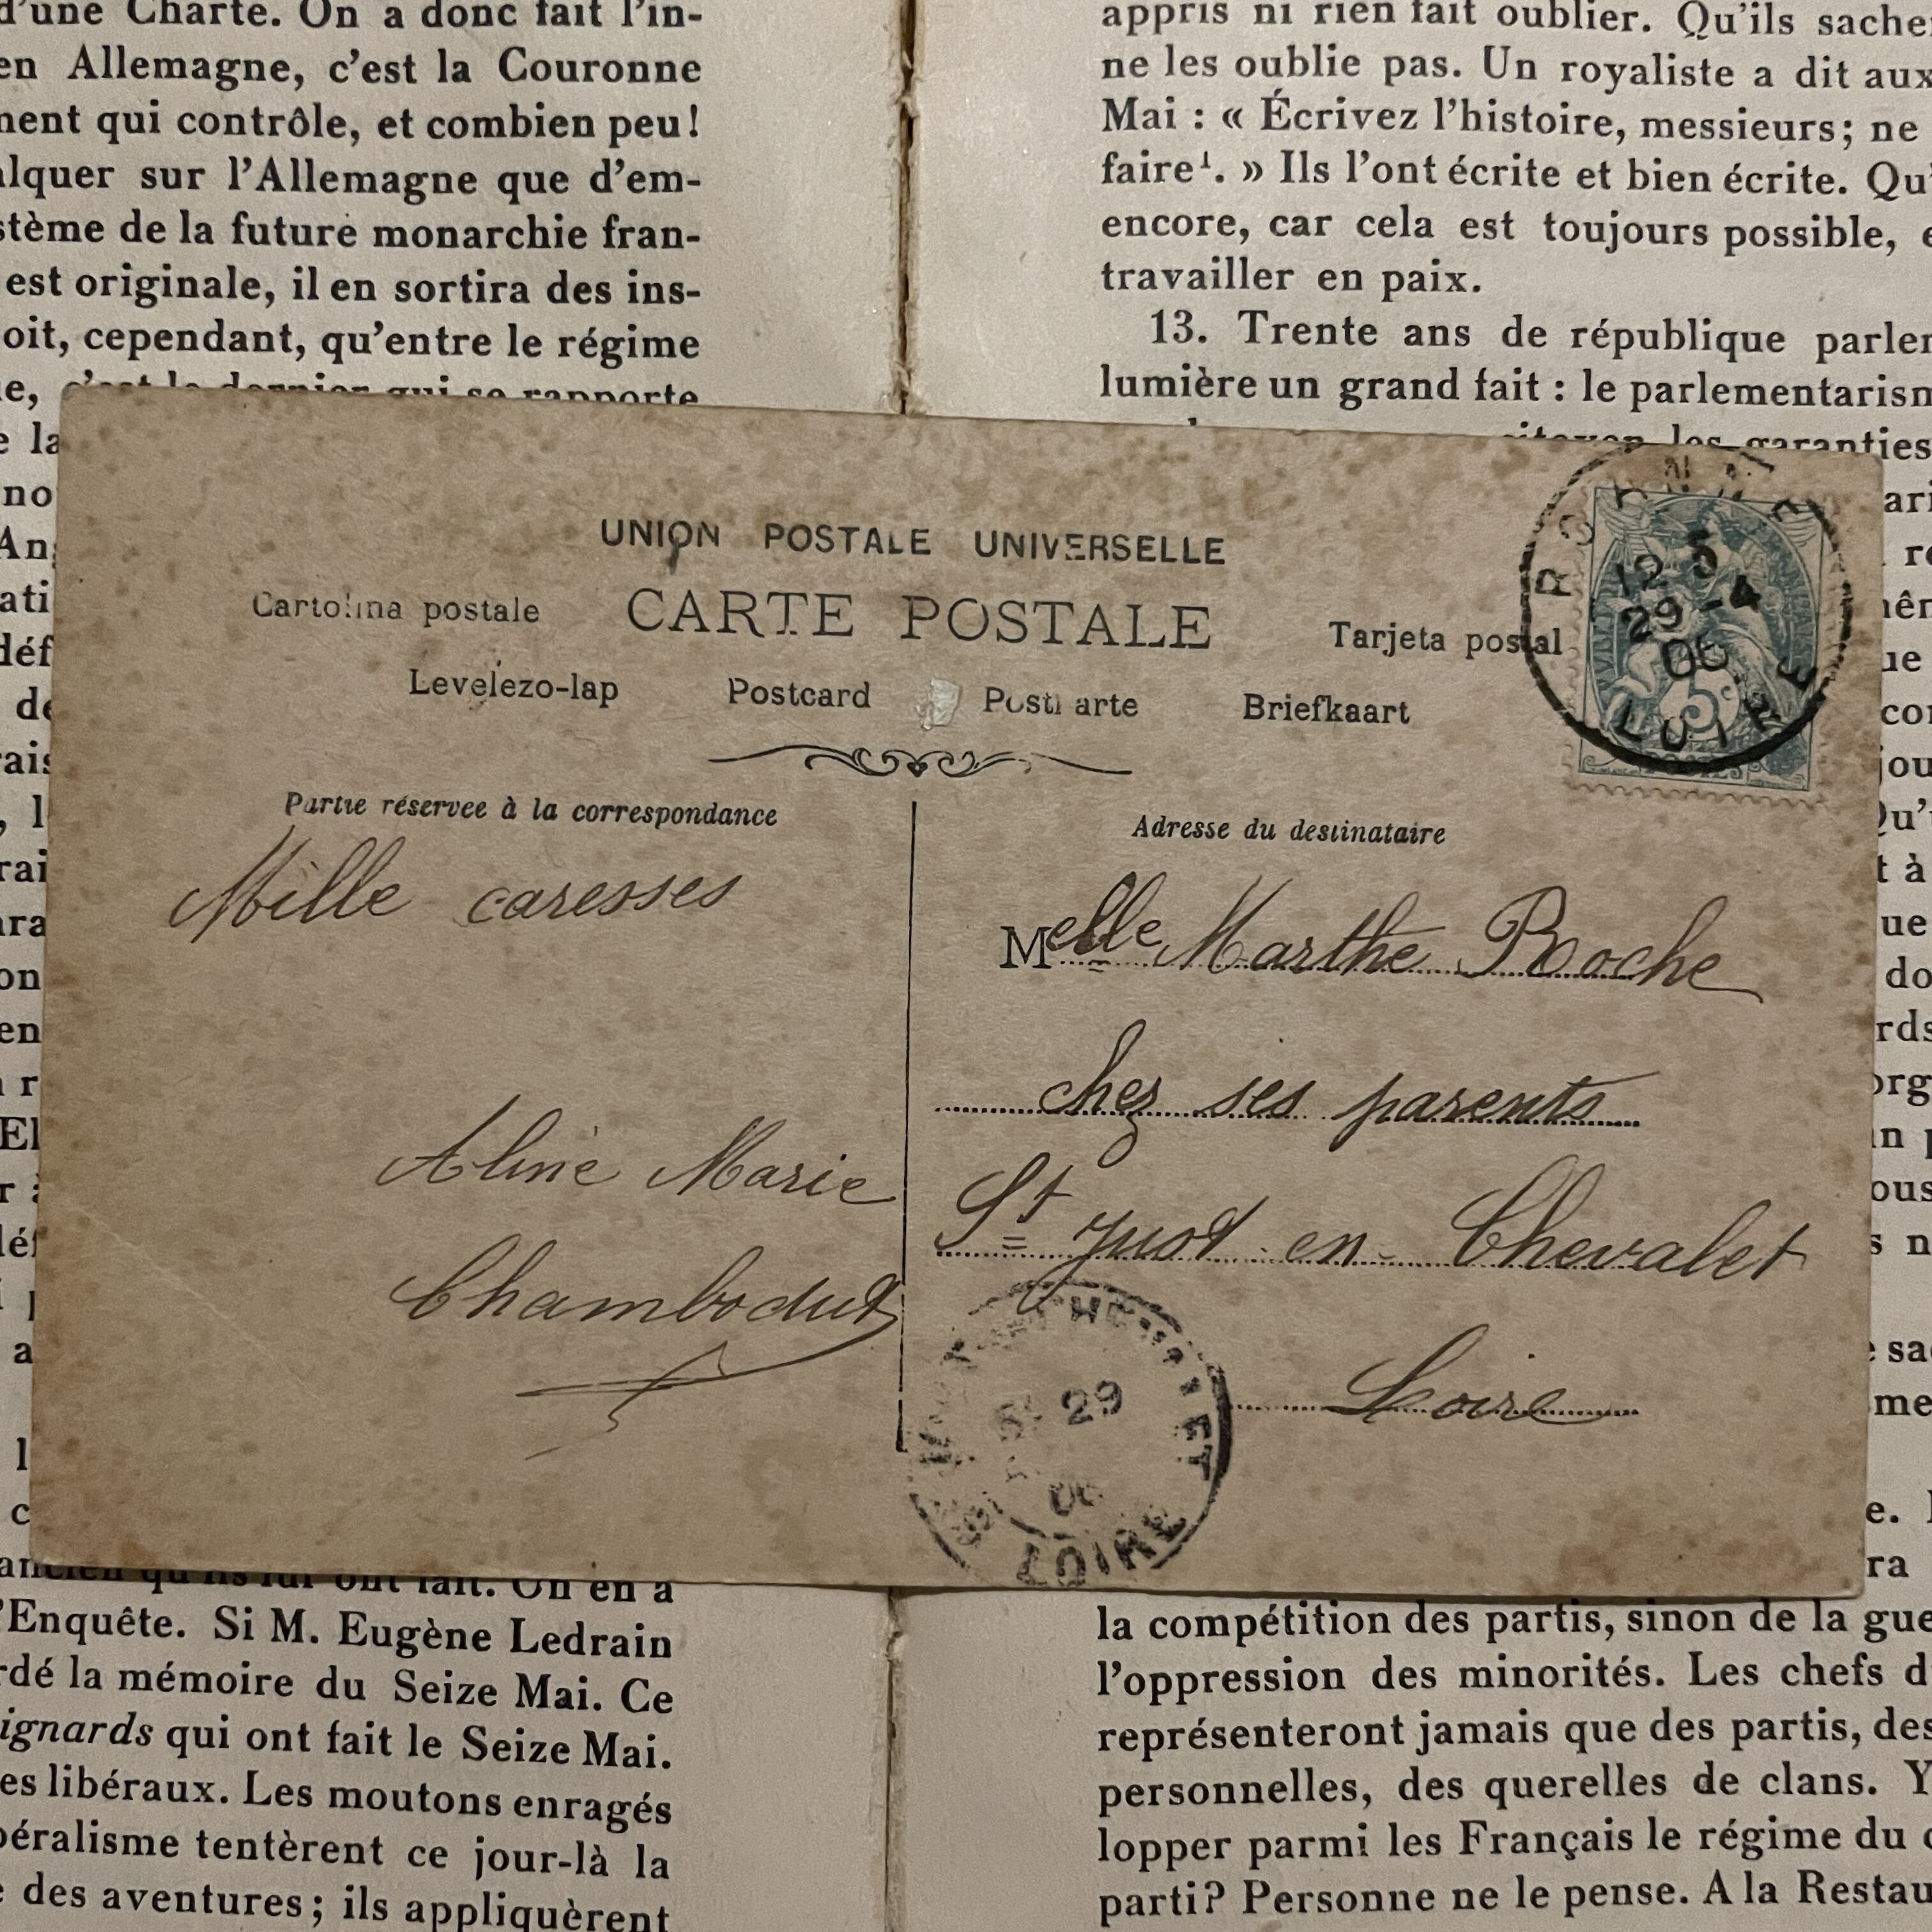 d'une Charte. On a donc fait l'in-
en Allemagne, c'est la Couronne
ment qui contrôle, et combien peu!
alquer sur l'Allemagne que d'em-
stème de la future monarchie fran-
est originale, il en sortira des ins-
oit, cependant, qu'entre le régime
c'est le dernier qui se rapporte
appris ni rien fait oublier. Qu'ils sache
ne les oublie pas. Un royaliste a dit aux
Mai : « Écrivez l'histoire, messieurs; ne
faire¹. » Ils l'ont écrite et bien écrite. Qu'
encore, car cela est toujours possible, e
travailler en paix.
13. Trente ans de république parlem
lumière un grand fait : le parlementarism
citoyen les garanties
UNION POSTALE UNIVERSELLE
Cartolina postale CARTE POSTALE Tarjeta postal
Levelezo-lap Postcard Postkarte Briefkaart
12 5
29 -4
06
LOIRE
5
POSTES
Partie réservee à la correspondance
Adresse du destinataire
Mille caresses
Aline Marie
Chambodut
Melle Marthe Roche
chez ses parents
St Just-en-Chevalet
Loire
29
06
LOIRE
ancien qu'ils lui ont fait. On en a
l'Enquête. Si M. Eugène Ledrain
rdé la mémoire du Seize Mai. Ce
ignards qui ont fait le Seize Mai.
es libéraux. Les moutons enragés
béralisme tentèrent ce jour-là la
e des aventures; ils appliquèrent
la compétition des partis, sinon de la gue
l'oppression des minorités. Les chefs d
représenteront jamais que des partis, des
personnelles, des querelles de clans. Y
lopper parmi les Français le régime du
parti? Personne ne le pense. A la Restau